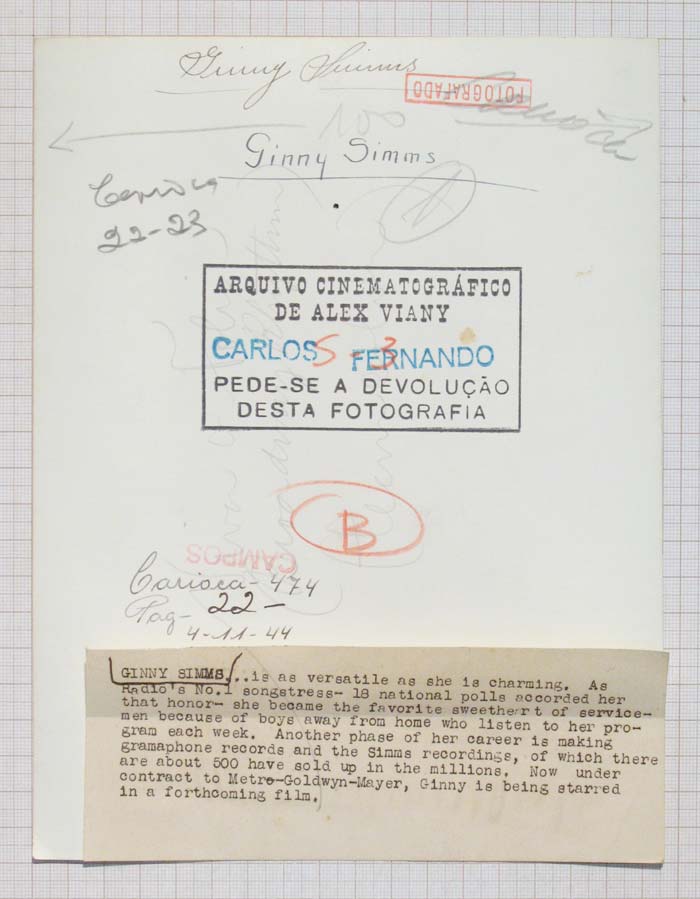 Ginny Simms
FOTOGRAFADO
100
Ginny Simms
Carioca
22-23
ARQUIVO CINEMATOGRÁFICO
DE ALEX VIANY
CARLOS S-3 FERNANDO
PEDE-SE A DEVOLUÇÃO
DESTA FOTOGRAFIA
B
CAMPOS
Carioca - 474
Pag - 22 -
4-11-44
GINNY SIMMS...is as versatile as she is charming. As
Radio's No.1 songstress- 18 national polls accorded her
that honor- she became the favorite sweethert of service-
men because of boys away from home who listen to her pro-
gram each week. Another phase of her career is making
gramaphone records and the Simms recordings, of which there
are about 500 have sold up in the millions. Now under
contract to Metro-Goldwyn-Mayer, Ginny is being starred
in a forthcoming film.